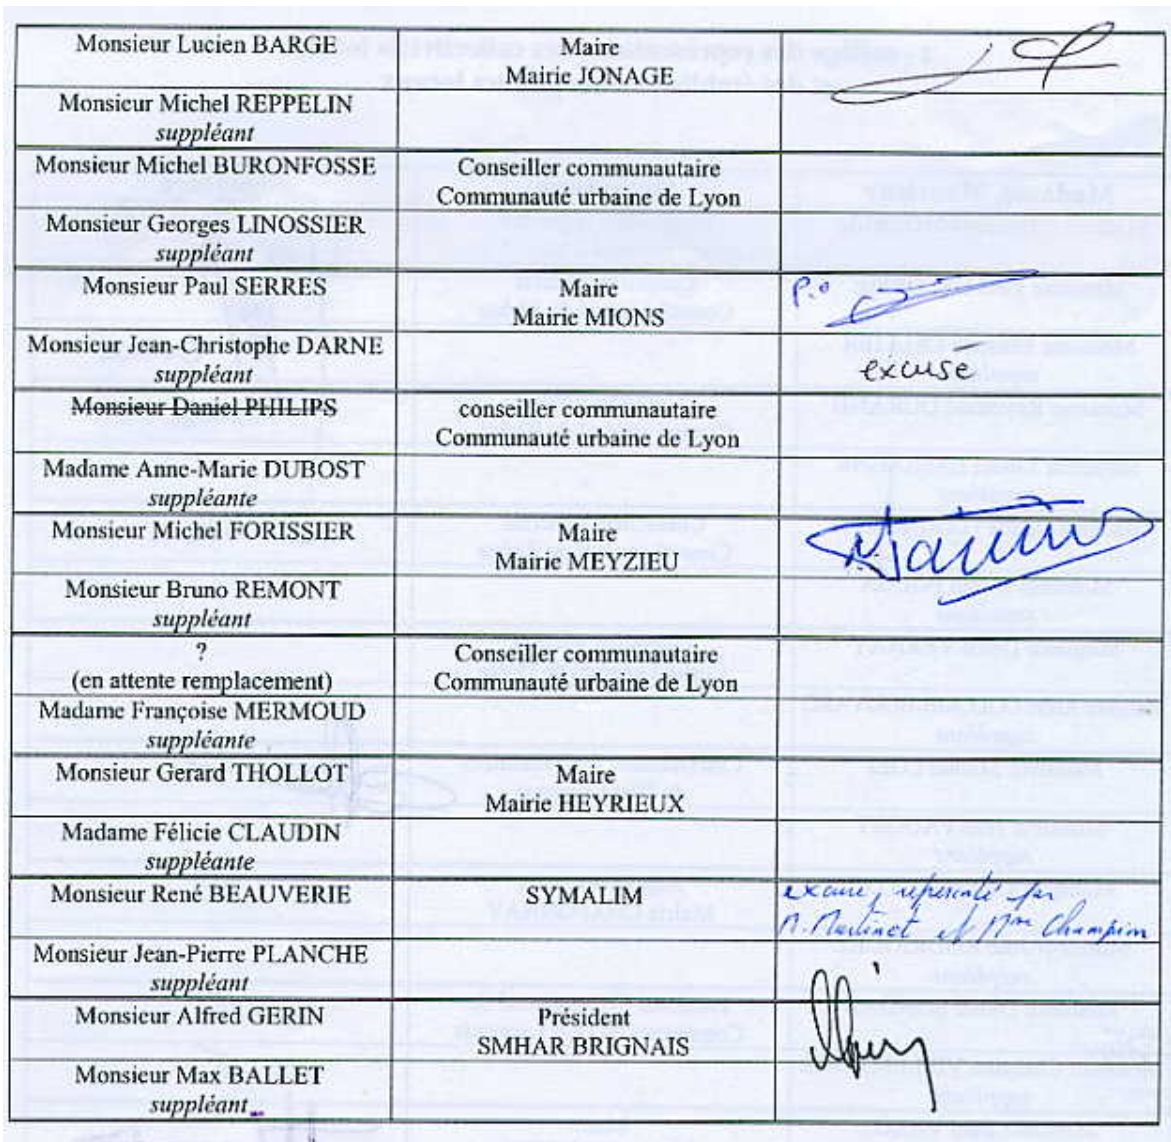 Monsieur Lucien BARGE
Maire
Mairie JONAGE
Monsieur Michel REPPELIN
suppléant
Monsieur Michel BURONFOSSE
Conseiller communautaire
Communauté urbaine de Lyon
Monsieur Georges LINOSSIER
suppléant
Monsieur Paul SERRES
Maire
Mairie MIONS
P.o
Monsieur Jean-Christophe DARNE
suppléant
excusé
Monsieur Daniel PHILIPS
conseiller communautaire
Communauté urbaine de Lyon
Madame Anne-Marie DUBOST
suppléante
Monsieur Michel FORISSIER
Maire
Mairie MEYZIEU
Monsieur Bruno REMONT
suppléant
?
(en attente remplacement)
Conseiller communautaire
Communauté urbaine de Lyon
Madame Françoise MERMOUD
suppléante
Monsieur Gerard THOLLOT
Maire
Mairie HEYRIEUX
Madame Félicie CLAUDIN
suppléante
Monsieur René BEAUVERIE
SYMALIM
excusé, représenté par
M. Martinet et Mme Champion
Monsieur Jean-Pierre PLANCHE
suppléant
Monsieur Alfred GERIN
Président
SMHAR BRIGNAIS
Monsieur Max BALLET
suppléant